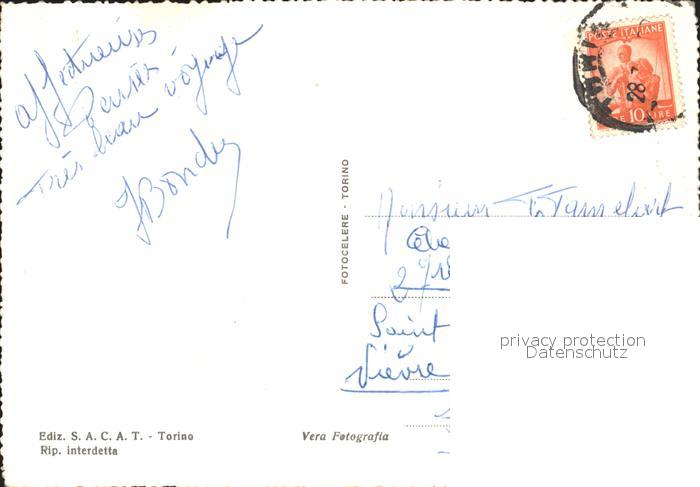 affectueuses
Pensées
Très beau voyage
Bondy
FOTOCELERE - TORINO
POSTE ITALIANE
10 LIRE
28
Monsieur
2
Saint
Nièvre
privacy protection
Datenschutz
Ediz. S. A. C. A. T. - Torino
Rip. interdetta
Vera Fotografia